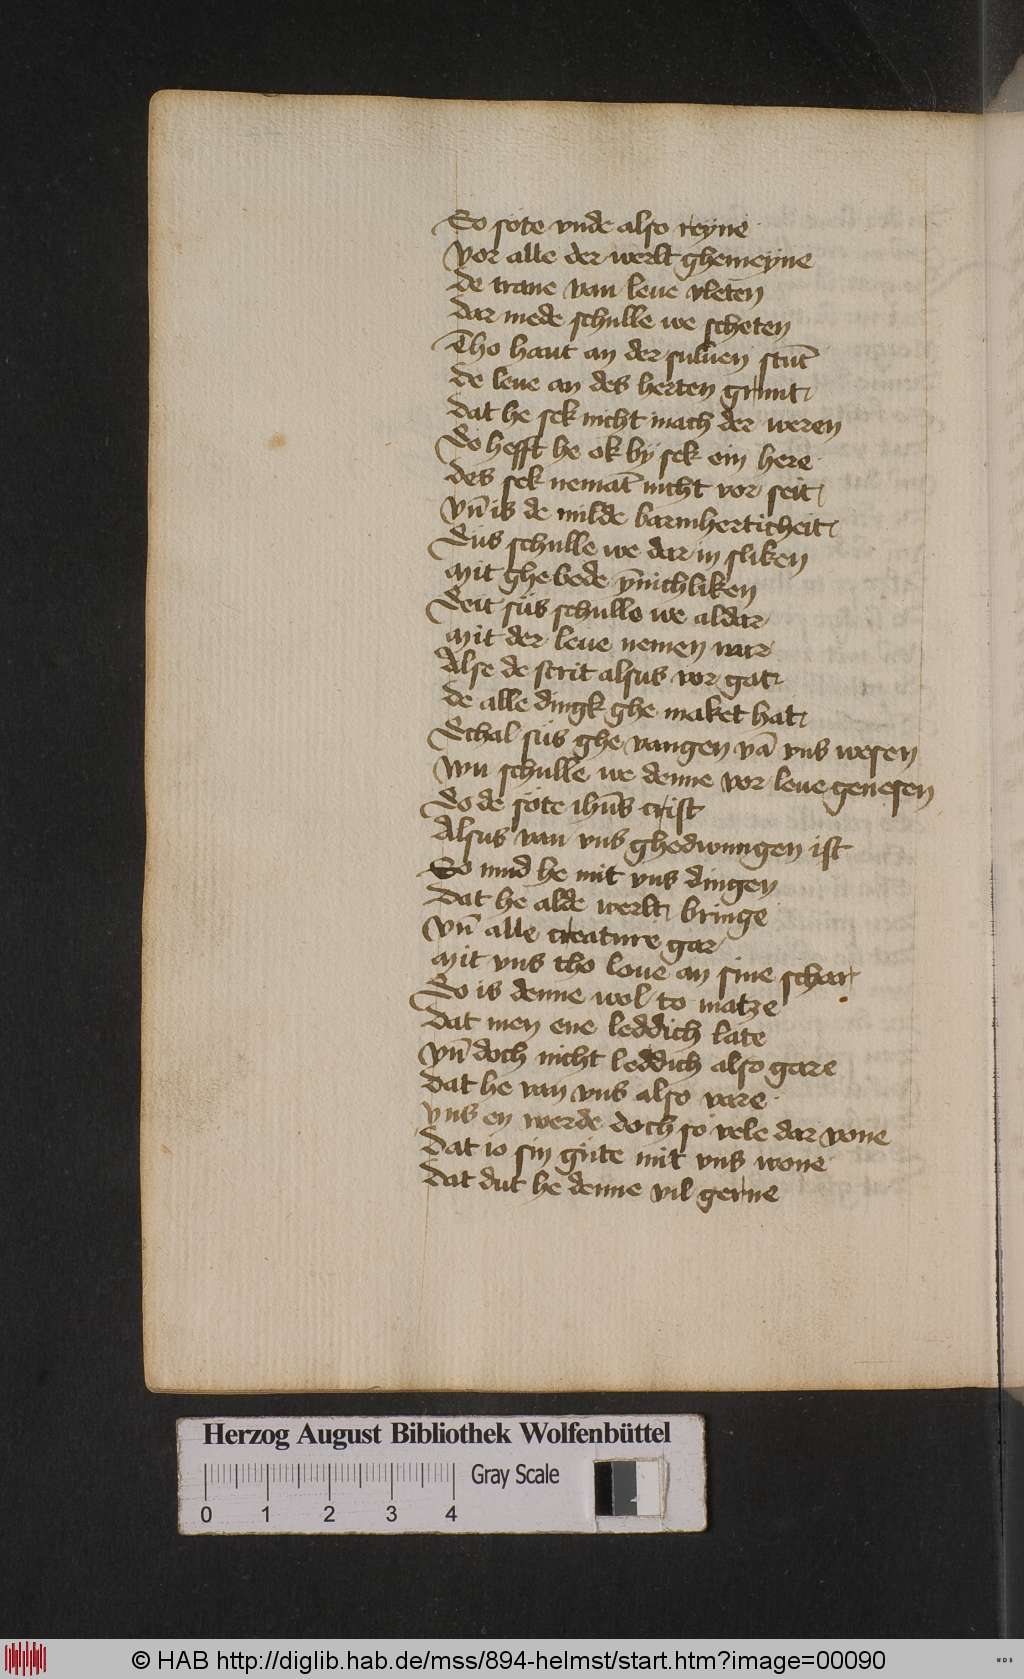 So sote vnde also reyne
Vor alle der werlt ghemeyne
de trane van leue vleten
dar mede schulle we scheten
Tho hant an der suluen stūt
de leue an des herten grunt
dat he sek nicht mach der weren
So hefft he ok by sek ein here
des sek nemāt nicht vor seit
vn̄ is de milde barmherticheit
Sus schulle we dar in sliken
Mit ghebede ẏnichliken
Seit sus schulle we aldar
Mit der leue nemen war
Alse de strit alsus vor gat
de alle dingk ghe maket hat
Schal sus ghe vangen vā vns wesen
Wu schulle we denne vor leue genesen
So de sote ihūs crist
Alsus van vns ghedwungen ist
So mud he mit vns dingen
Dat he alde werlt bringe
vn̄ alle creature gar
Mit vns tho loue an sine schar
So is denne wol to matze
dat men ene leddich late
vn̄ doch nicht leddich also gare
dat he van vns also vare
vns en werde doch so vele dar vone
dat io sin gute mit vns wone
dat dut he denne vil gerne
Herzog August Bibliothek Wolfenbüttel
Gray Scale
0 1 2 3 4
© HAB http://diglib.hab.de/mss/894-helmst/start.htm?image=00090